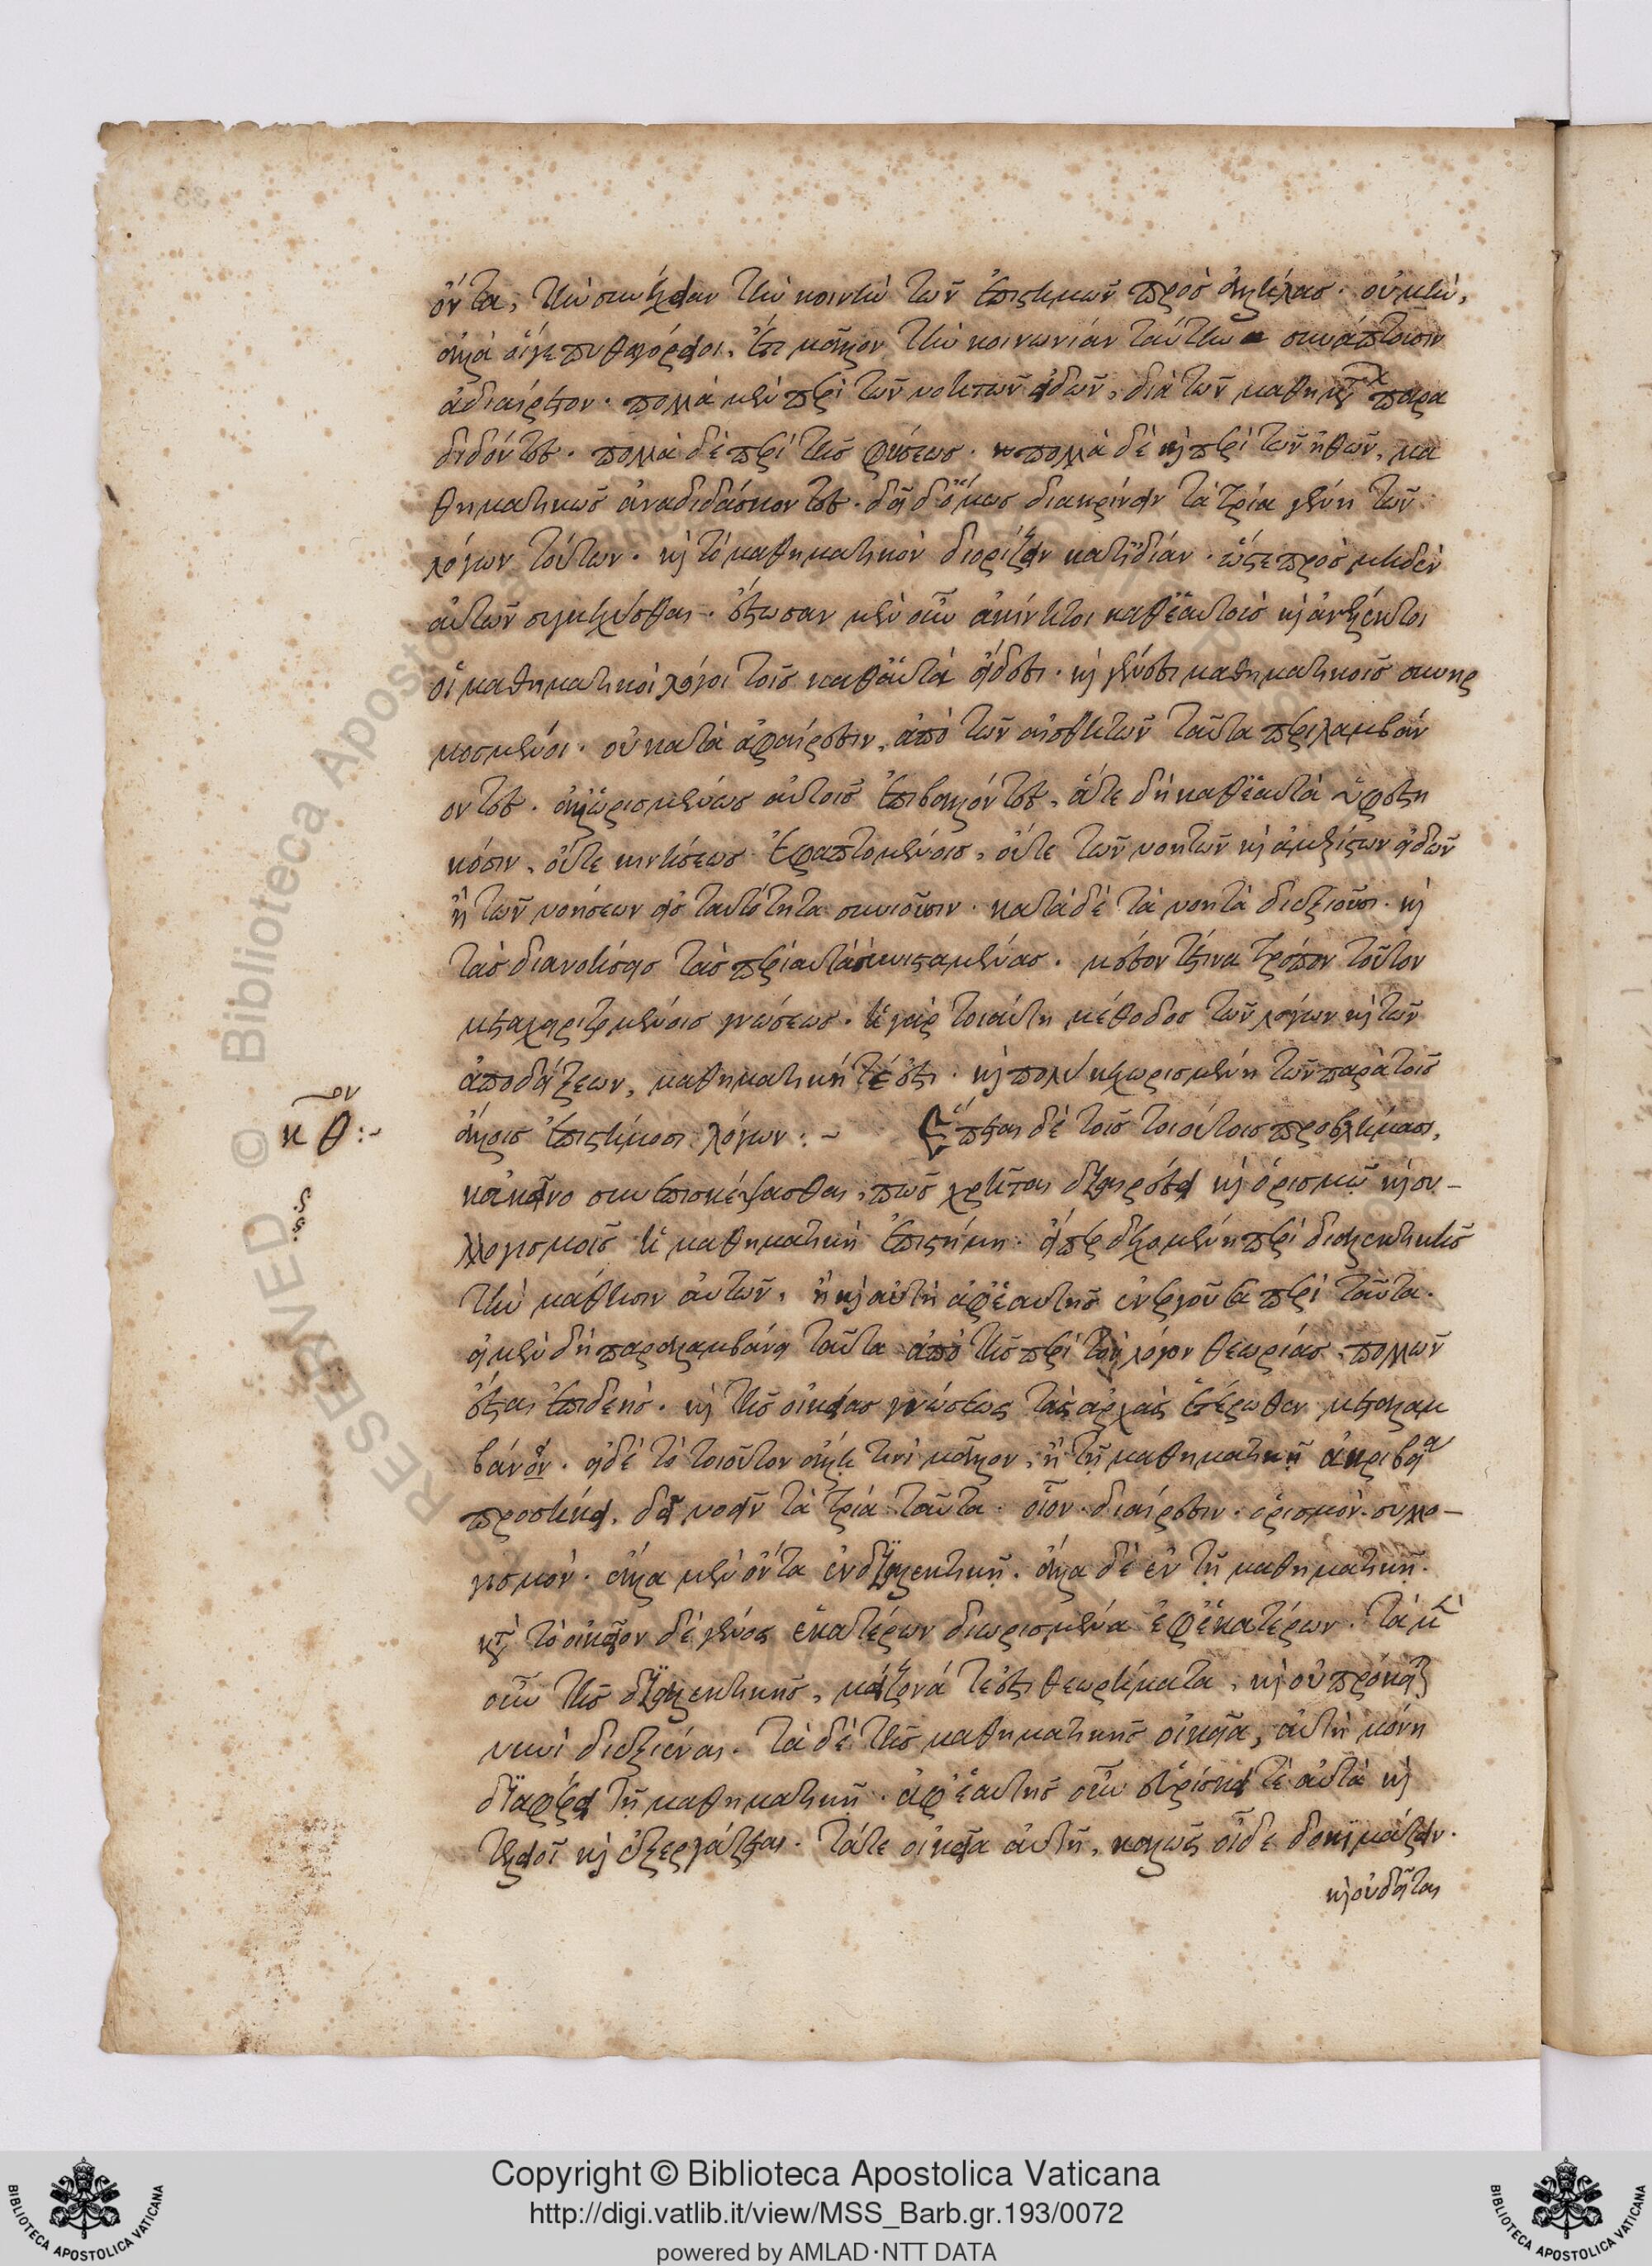 ὄντα, τὴν συνήθειαν τὴν κοινὴν τῶν ἐπιστημῶν πρὸς ἀλλήλας. οὐ μὴν,
ἀλλὰ οἵγε πυθαγόρειοι, ἔτι μᾶλλον τὴν κοινωνίαν ταύτην συνάπτουσιν
ἀδιαίρετον. πολλὰ μὲν περὶ τῶν νοητῶν εἰδῶν, διὰ τῶν μαθημάτων παρα
διδόντες. πολλὰ δὲ περὶ τῆς φύσεως. πολλὰ δὲ καὶ περὶ τῶν ἠθῶν, μα
θηματικῶς ἀναδιδάσκοντες. δεῖ δ' ὅμως διακρίνειν τὰ τρία γένη τῶν
λόγων τούτων. καὶ τὸ μαθηματικὸν διορίζειν κατ' ἰδίαν. ὥστε πρὸς μηδὲν
αὐτῶν συγκεχύσθαι. ἔστωσαν μὲν οὖν ἀκίνητοι καθ' ἑαυτοὺς καὶ ἀνέλεγκτοι
οἱ μαθηματικοὶ λόγοι τοῖς καθ' αὑτὰ εἴδεσι. καὶ γένεσι μαθηματικοῖς συνηρ
μοσμένοι. οὐ κατὰ ἀφαίρεσιν, ἀπὸ τῶν αἰσθητῶν ταῦτα περιλαμβάν
οντες. ἀλλ' ὡρισμένως αὐτοῖς ἐπιβάλλοντες, ἅτε δὴ καθ' ἑαυτὰ ὑφεστη
κόσιν, οὔτε κινήσεως ἐφαπτομένοις, οὔτε τῶν νοητῶν καὶ ἀμερίστων εἰδῶν
ἢ τῶν νοήσεων εἰς ταυτότητα συνιοῦσιν. κατὰ δὲ τὰ νοητὰ διεξιοῦσι. καὶ
τὰς διανοήσεις τὰς περὶ αὐτὰ συνισταμένας. μέσον τινα τρόπον τοῦτον
μεταχειριζομένοις γνώσεως. ἡ γὰρ τοιαύτη μέθοδος τῶν λόγων καὶ τῶν
ἀποδείξεων, μαθηματική τέ ἐστι. καὶ πολὺ κεχωρισμένη τῶν παρὰ τοῖς
ἄλλοις ἐπιστήμοσι λόγων:~ Ἕπεται δὲ τοῖς τοιούτοις προβλήμασι,
κθον:~
κἀκεῖνο συνεπισκέψασθαι, πῶς χρῆται διαιρέσει καὶ ὁρισμῷ καὶ συ-
λλογισμοῖς ἡ μαθηματικὴ ἐπιστήμη. εἴπερ δεχομένη περὶ διαλεκτικῆς
τὴν μάθησιν αὐτῶν, ἢ καὶ αὐτὴ ἀφ' ἑαυτῆς ἐνεργοῦσα περὶ ταῦτα.
εἰ μὲν δὴ παραλαμβάνει ταῦτα ἀπὸ τῆς περὶ τὸν λόγον θεωρίας, πολλῶν
ἔσται ἐπιδεής. καὶ τῆς οἰκείας γνώσεως τὰς ἀρχὰς ἑτέρωθεν μεταλαμ
βάνον. εἰ δὲ τὸ τοιοῦτον ἄλλῃ τινὶ μᾶλλον, ἢ τῇ μαθηματικῇ ἀκριβείᾳ
προσήκει, δεῖ νοεῖν τὰ τρία ταῦτα. οἷον. διαίρεσιν. ὁρισμόν. συλλο-
γισμόν. ἄλλα μὲν ὄντα ἐν διαλεκτικῇ. ἄλλα δὲ ἐν τῇ μαθηματικῇ.
κατὰ τὸ οἰκεῖον δὲ γένος ἑκατέρων διωρισμένα ἐφ' ἑκατέρων. τὰ μὲν
οὖν τῆς διαλεκτικῆς, μείζονά τέ ἐστι θεωρήματα, καὶ οὐ πρόκειται
νυνὶ διεξιέναι. τὰ δὲ τῆς μαθηματικῆς οἰκεῖα, αὐτὴ μόνη
διαφέρει τῇ μαθηματικῇ. ἀφ' ἑαυτῆς οὖν εὑρίσκει τὲ αὐτὰ καὶ
τελειοῖ καὶ ἐξεργάζεται. τάτε οἰκεῖα αὐτῇ, καλῶς οἶδε δοκιμάζειν.
καὶ οὐ δεῖται